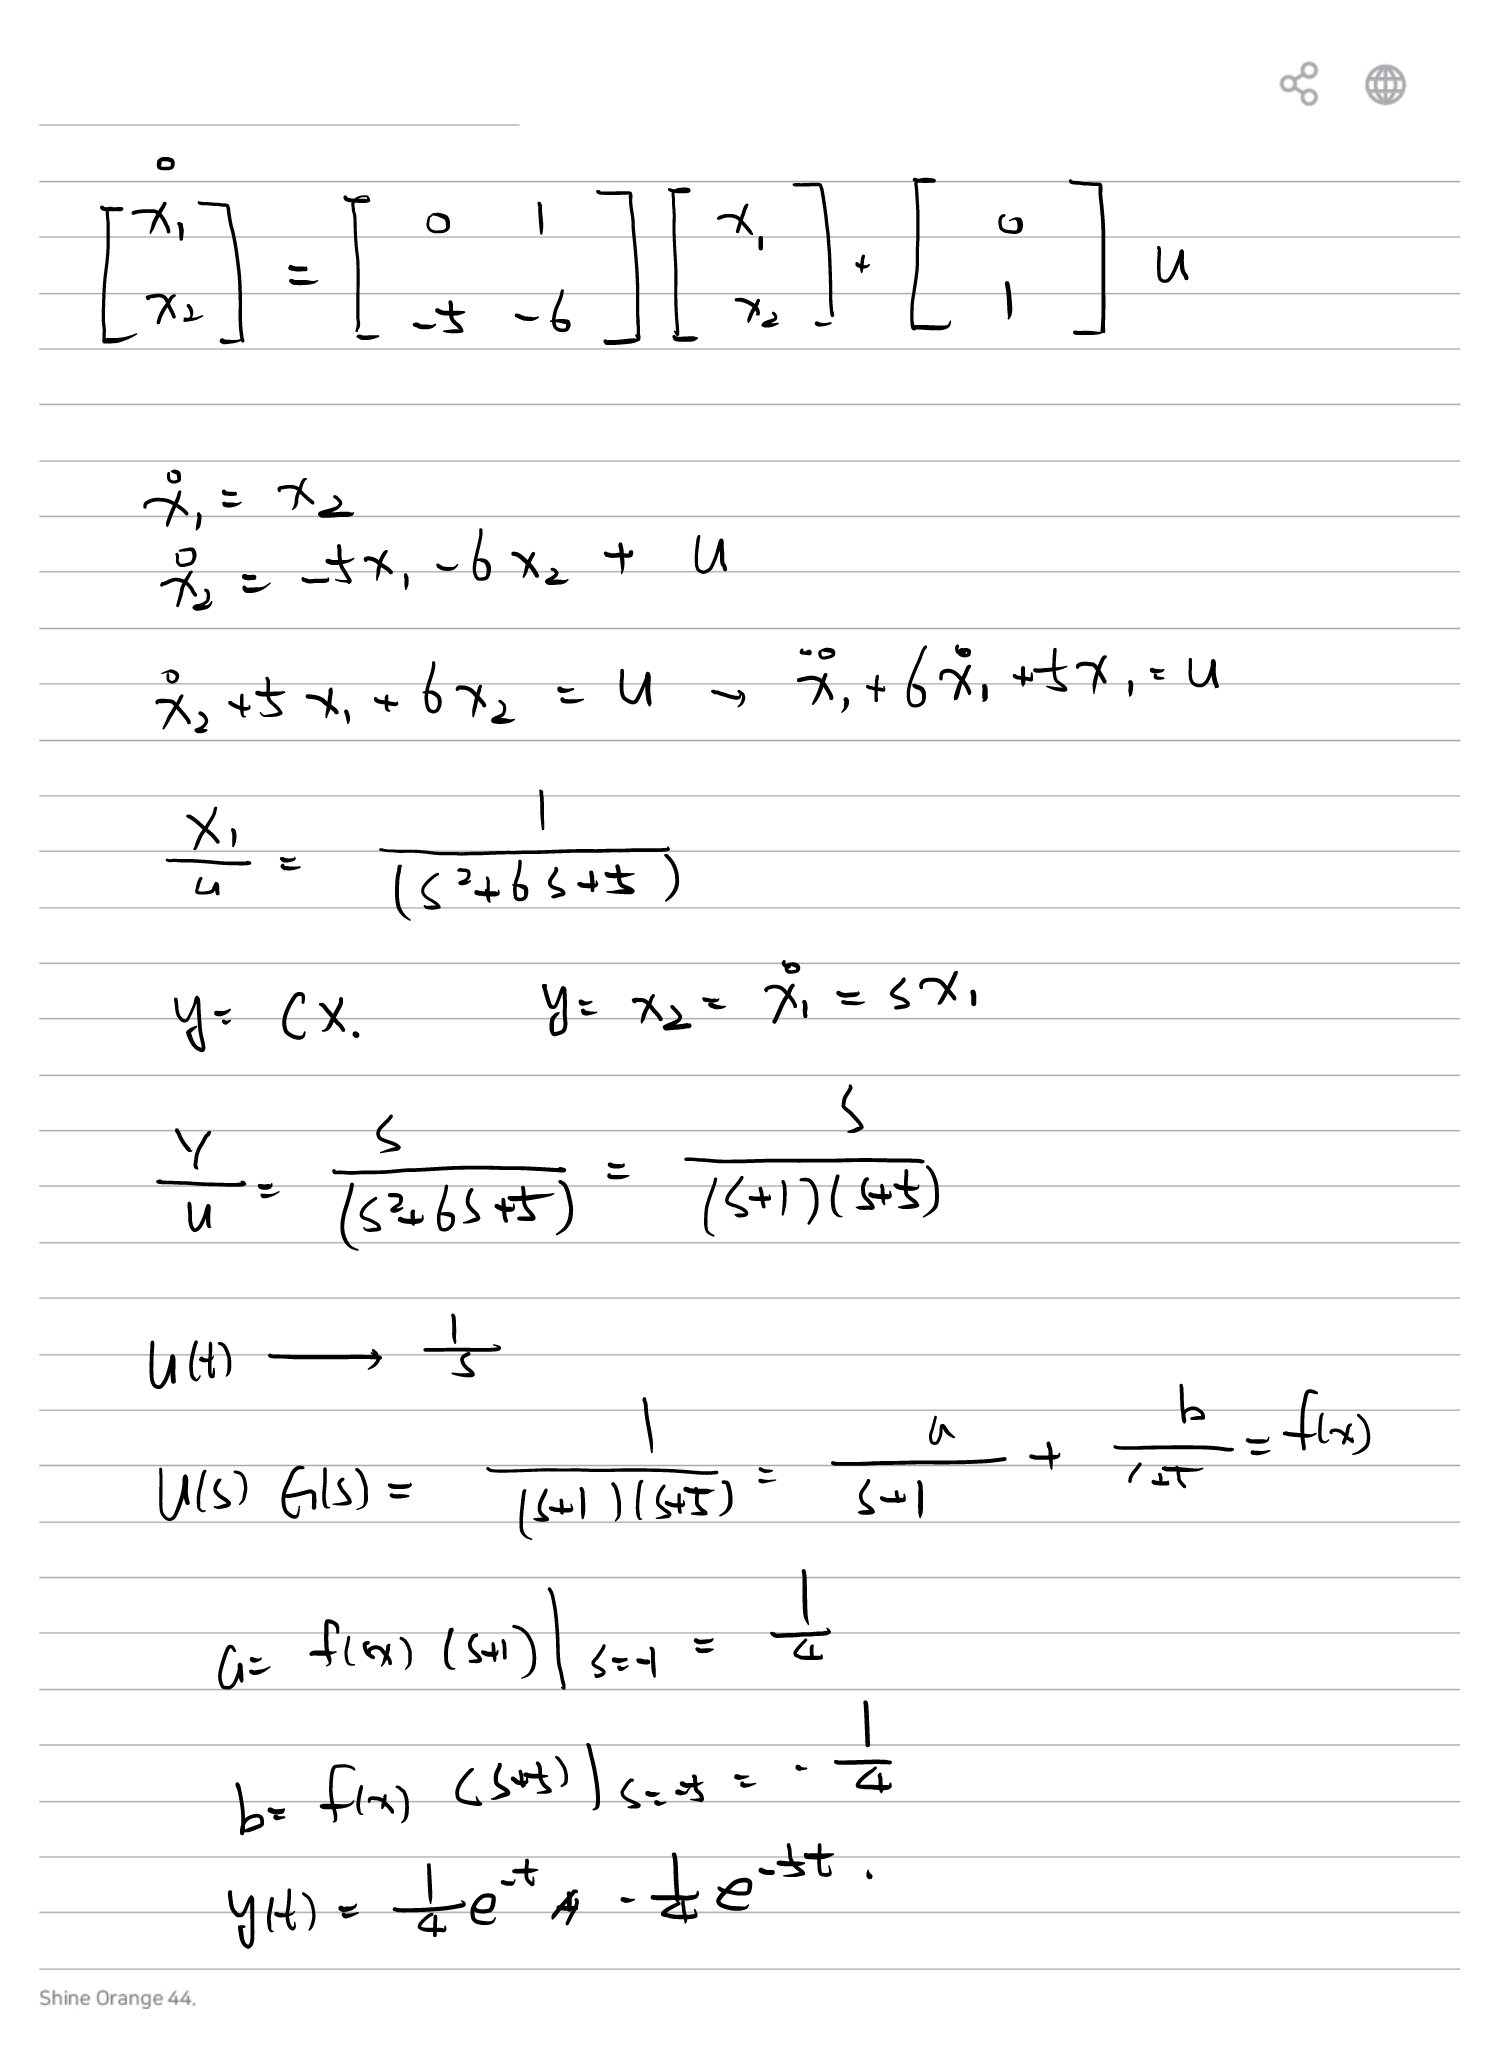 [ẋ₁ x₂] = [0 1 -5 -6] [x₁ x₂] + [0 1] u
ẋ₁ = x₂
ẋ₂ = -5x₁ -6x₂ + u
ẋ₂ +5x₁ + 6x₂ = u → ẍ₁ + 6ẋ₁ +5x₁ = u
X₁/u = 1/(s²+6s+5)
y = CX. y = x₂ = ẋ₁ = sx₁
Y/u = s/(s²+6s+5) = s/(s+1)(s+5)
u(t) → 1/s
U(s) G(s) = 1/(s+1)(s+5) = a/s+1 + b/s+5 = f(x)
a = f(x) (s+1)|s=-1 = 1/4
b = f(x) (s+5)|s=-5 = -1/4
y(t) = 1/4 e^-t - 1/4 e^-5t.
Shine Orange 44.